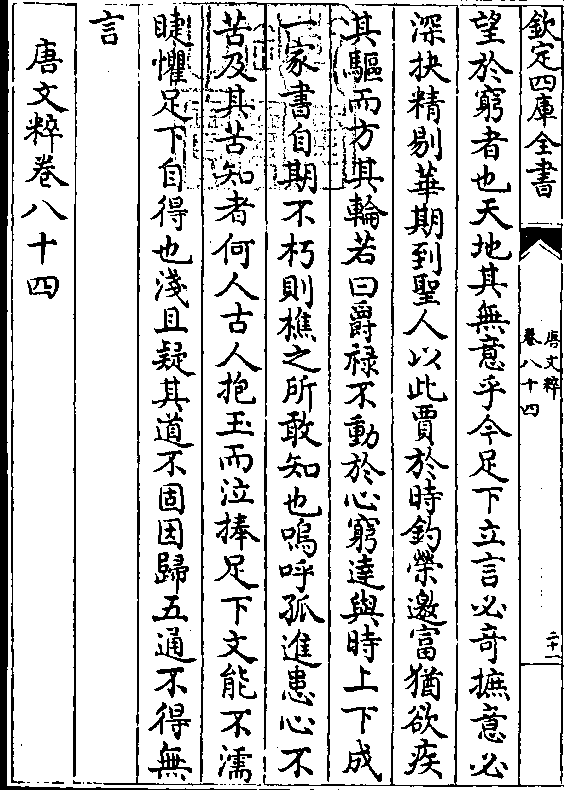 欽定四庫全書
唐文粹
卷八十四
二十一
望於窮者也天地其無意乎今足下立言必奇摭意必
深抉精剔華期到聖人以此賈於時釣榮邀富猶欲疾
其驅而方其輪若曰爵祿不動於心窮達與時上下成
一家書自期不朽則樵之所敢知也嗚呼孤進患心不
苦及其苦知者何人古人抱玉而泣捧足下文能不濡
睫懼足下自得也淺且疑其道不固因歸五通不得無
言
唐文粹卷八十四